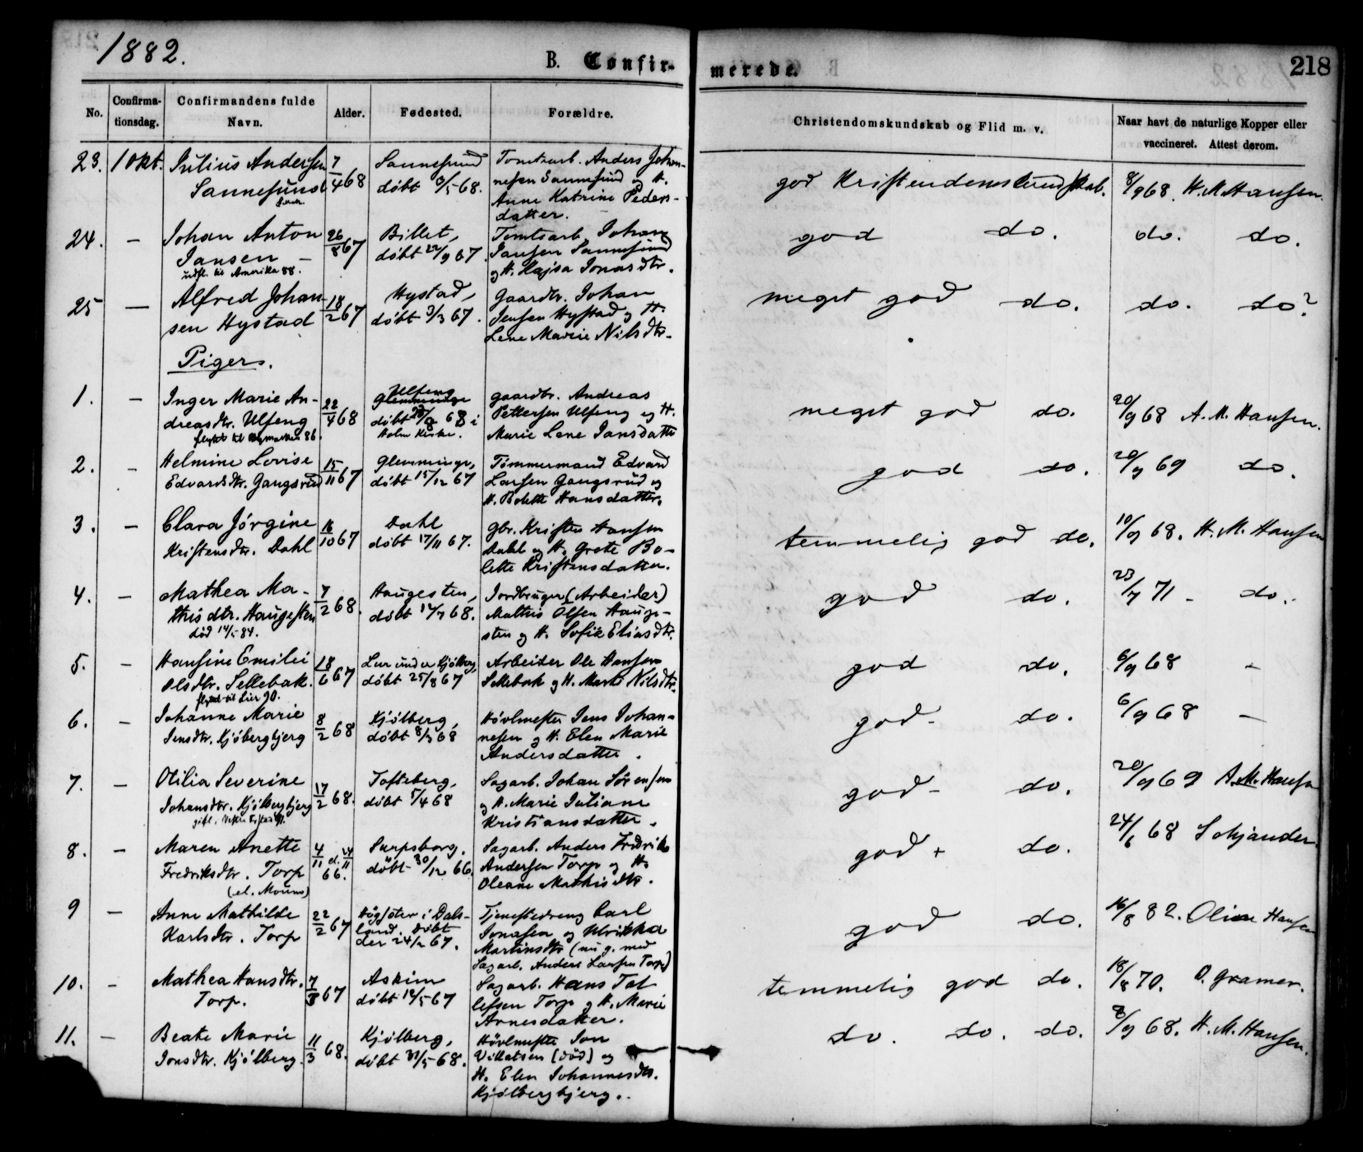 1882.
B. Confir-
merede.
218
No.
Confirma-
tionsdag.
Confirmandens fulde
Navn.
Alder.
Fødested.
Forældre.
Christendomskundskab og Flid m. v.
Naar havt de naturlige Kopper eller
vaccineret. Attest derom.
23. 1 Okt. Julius Andersen 7/4 68 Sannesund Tomtearb. Anders Johan-
Sannesund døbt 3/5 68. nesen Sannesund og H.
Anne Katrine Peders-
datter.
god Kristendomskundskab. 8/9 68. H. M. Hansen.
24. — Johan Anton 26/8 67 Tomtearb. Johan
Jansen døbt 22/9 67 Jansen Sannesund
udfl. til Amerika 88. og H. Kajsa Jonasdtr.
god do. do. do.
25 — Alfred Johan- 18/2 67 Hystad, Gaardbr. Johan
sen Hystad døbt 3/3 67. Jensen Hystad og H.
Lene Marie Nilsdtr.
meget god do. do. do?
Piger.
1. — Inger Marie An- 22/4 68 Ulfeng gaardbr. Andreas
dreasdtr. Ulfeng døbt 68 i Pettersen Ulfeng og H.
86. Holm Kirke. Marie Lene Jansdatter
meget god do. 20/9 68 A. M. Hansen.
2. — Helmine Lovise 15/11 67 Glemminge, Tømmermand Edvard
Edvardsdtr. Gangsrud døbt 15/12 67 Larsen Gangsrud og
H. Bolette Hansdatter.
god do. 20/9 69 do.
3. — Clara Jørgine 16/10 67 Dahl gbr. Kristen Hansen
Kristensdtr. Dahl døbt 17/11 67. Dahl og H. Grete Bo-
lette Kristensdatter.
temmelig god do. 10/9 68. H. M. Hansen
4. — Mathea Ma- 7/2 68. Haugesten, Jordbruger (Arbeider)
thisdtr. Haugesten døbt 14/4 68. Mathis Olsen Hauge-
død 14/5 84. sten og H. Sofie Eliasdtr.
god do. 23/9 71 — do.
5. — Hansine Emilie 18/6 67 Lur under Kjølberg, Arbeider Ole Hansen
Olsdtr. Sellebak. døbt 25/8 67 Sellebak og H. Marte Nilsdtr.
flyttet til Lier 90.
god do. 6/9 68 —
6. — Johanne Marie 8/2 68 Kjølberg, Høvlmester Jens Johan-
Jensdtr. Kjølbergbjerg døbt 8/3 68 nesen og H. Elen Marie
Andersdatter.
god — do. 6/9 68 —
7. — Otilia Severine 17/2 68. Tofteberg, Sagarb. Johan Sørensen
Johansdtr. Kjølbergbjerg døbt 5/4 68 og H. Marie Juliane
Kristiansdatter.
god — do. 20/9 69 A. M. Hansen
8. — Maren Anette 4/11 66. Sarpsborg, Sagarb. Anders Fredrik
Fredriksdtr. Torp døbt 30/12 66. Andersen Torp og H.
Oleane Mathisdtr.
god + do. 24/6 68 Schjander.
9 — Anne Mathilde 22/2 67 Høgsäter i Dals- Tjenestedreng Carl
Karlsdtr. Torp land. døbt Jonasen og Ulrikka
der 24/2 67. Martinsdtr (nu g. med
Sagarb. Anders Larsen Torp)
god do. 16/8 82. Oline Hansen
10. — Mathea Hansdtr. 7/3 67 Askim Sagarb. Hans Tol-
Torp. døbt 12/5 67 lefsen Torp og H. Marie
Arnesdatter.
temmelig god do. 18/8 70. O. Gramer.
11. — Beate Marie 11/3 68. Kjølberg, Høvlmester Jon
Jonsdtr. Kjølberg døbt 31/5 68. (død) og
H. Elen Johannesdtr.
Kjølbergbjerg.
do. do. do. 8/9 68. H. M. Hansen.